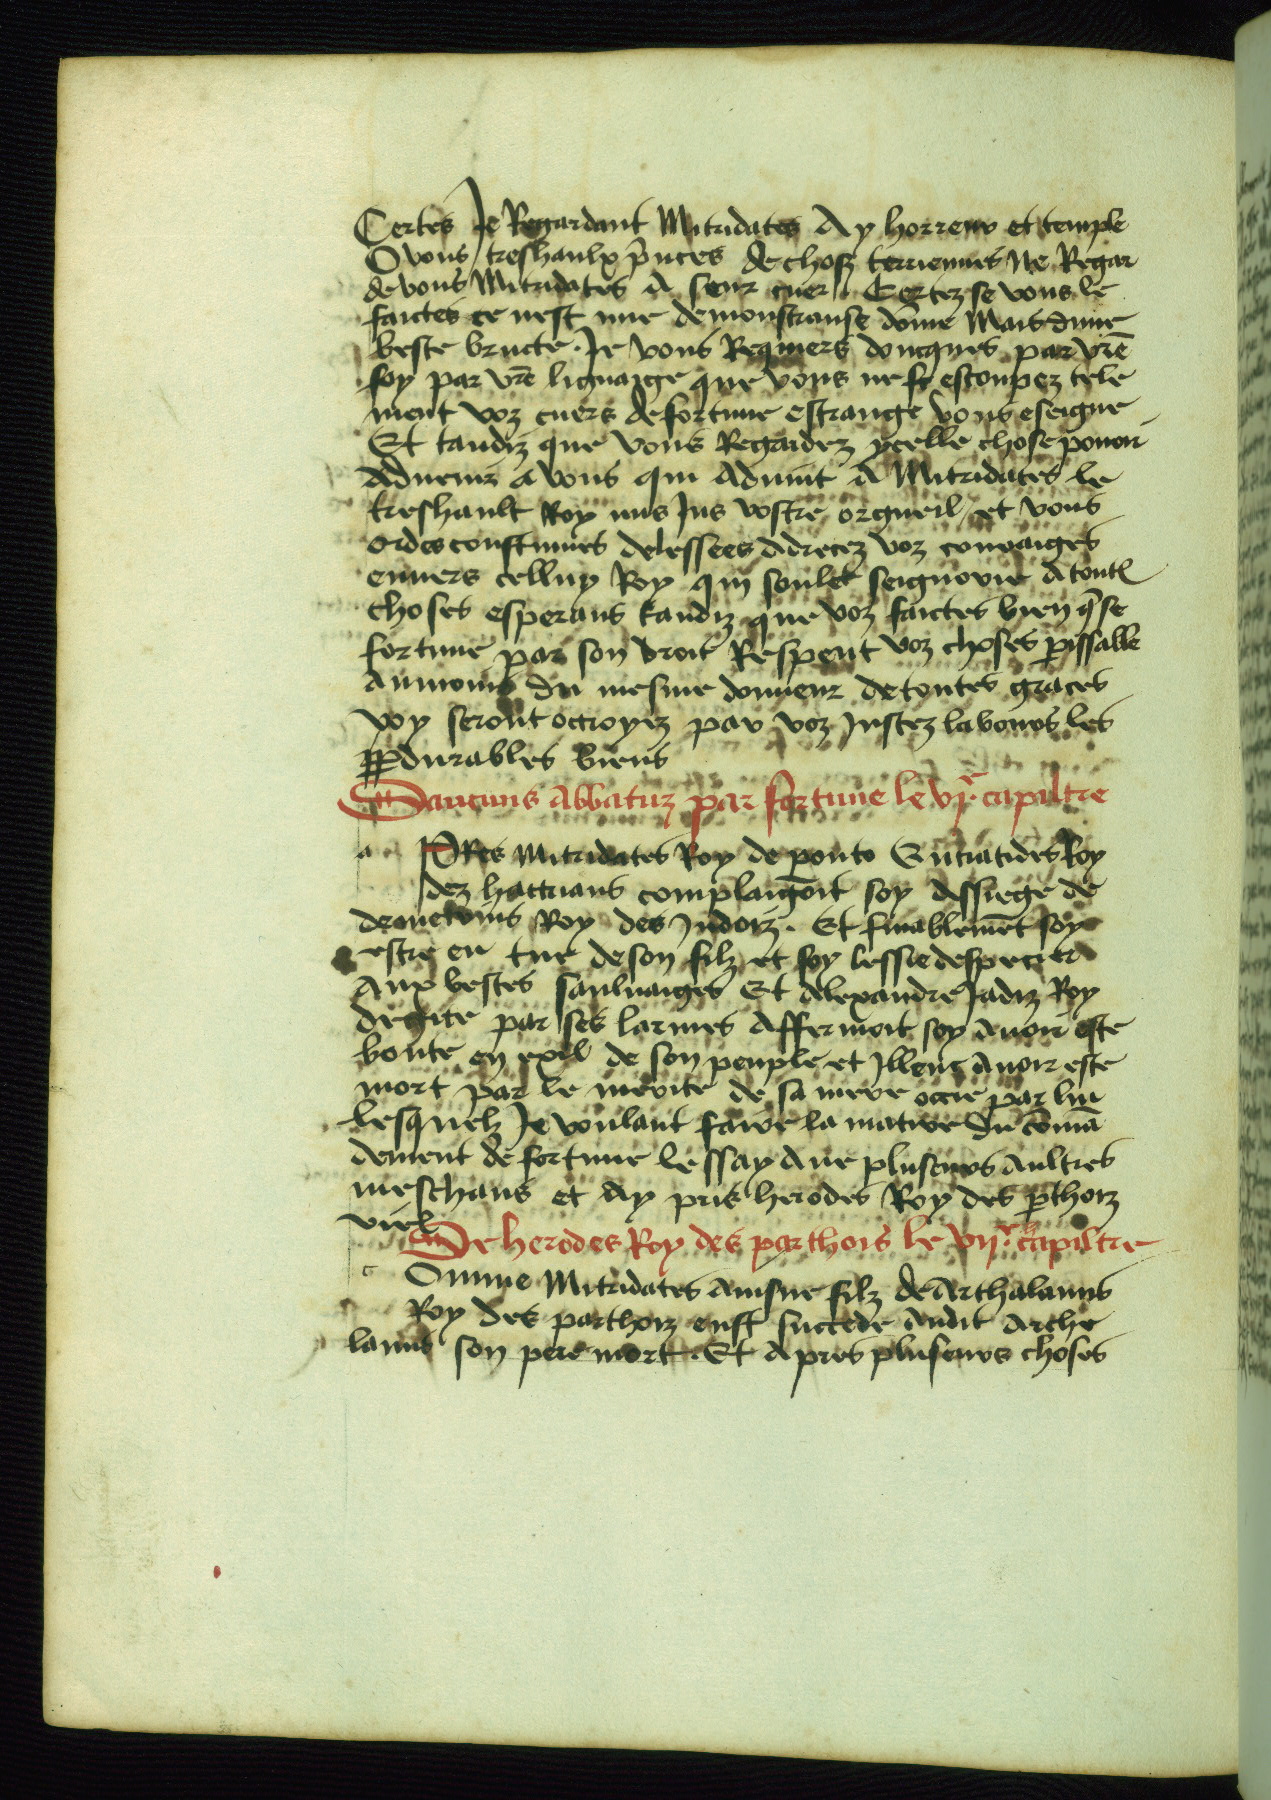 Certes Je Regardant Mitridates Ay horreur et temple
O vous treshaulx p̃nces de chos terriennes Ne Regar
de vous Mitridates A seur cuer Certez se vous le
faictes ce nest une demonstranse dõme Mais dune
beste brute. Je vous Requiers doncques par vr̃e
foy par vr̃e lignaige que vous ne estoupez tele
ment voz cuers de fortune estrange vous eseigne
Et tandiz que vous Regardez ycelle chose pouoir
Aduenir a vous qui Aduint A Mitridates le
treshault Roy mis Jus vostre orgueil et vous
ordes constumes delessees Adrecez voz couraiges
enuers celluy Roy qui soulet seignourie A tout
choses esperans tandiz que voz faictes bien q̃ se
fortune par son droit Respent voz choses p̃issable
Aumoins Du mesme donneur de toutes graces
voy seront octroyez par voz Justez labours les
p̱p̱durables biens
Daucuns Abbatuz par fortune le vjᵉ. capiltre
a PRes Mitridates Roy de ponto Eutiatides Roy
dez hattrians complaignõit soy Assiege de
demetrius Roy des Jndoiz. Et finablemẽt soy
estre en tue de son filz et soy lessie despecier
Aux bestes sauluaiges Et Alexandre Jadiz Roy
degite par ses larmes Affermoit soy Auoir este
boute en exil de son peuple et Jllenc Auoir este
mort par le merite de sa mere occie par lui
lesquelz Je voulant faire la matire Du cõmã
dement de fortune lessay Aue pluseurs Aultres
meschans et Ay pris herodes Roy des p̱thoiz
viel
De herodes Roy des parthois le vijᵉ. capiltre
c Omme Mitridates Ainsne filz de Arthalanus
Roy des parthoiz eust succede Audit Arthe
lanus son pere mort. Et Apres pluseurs choses